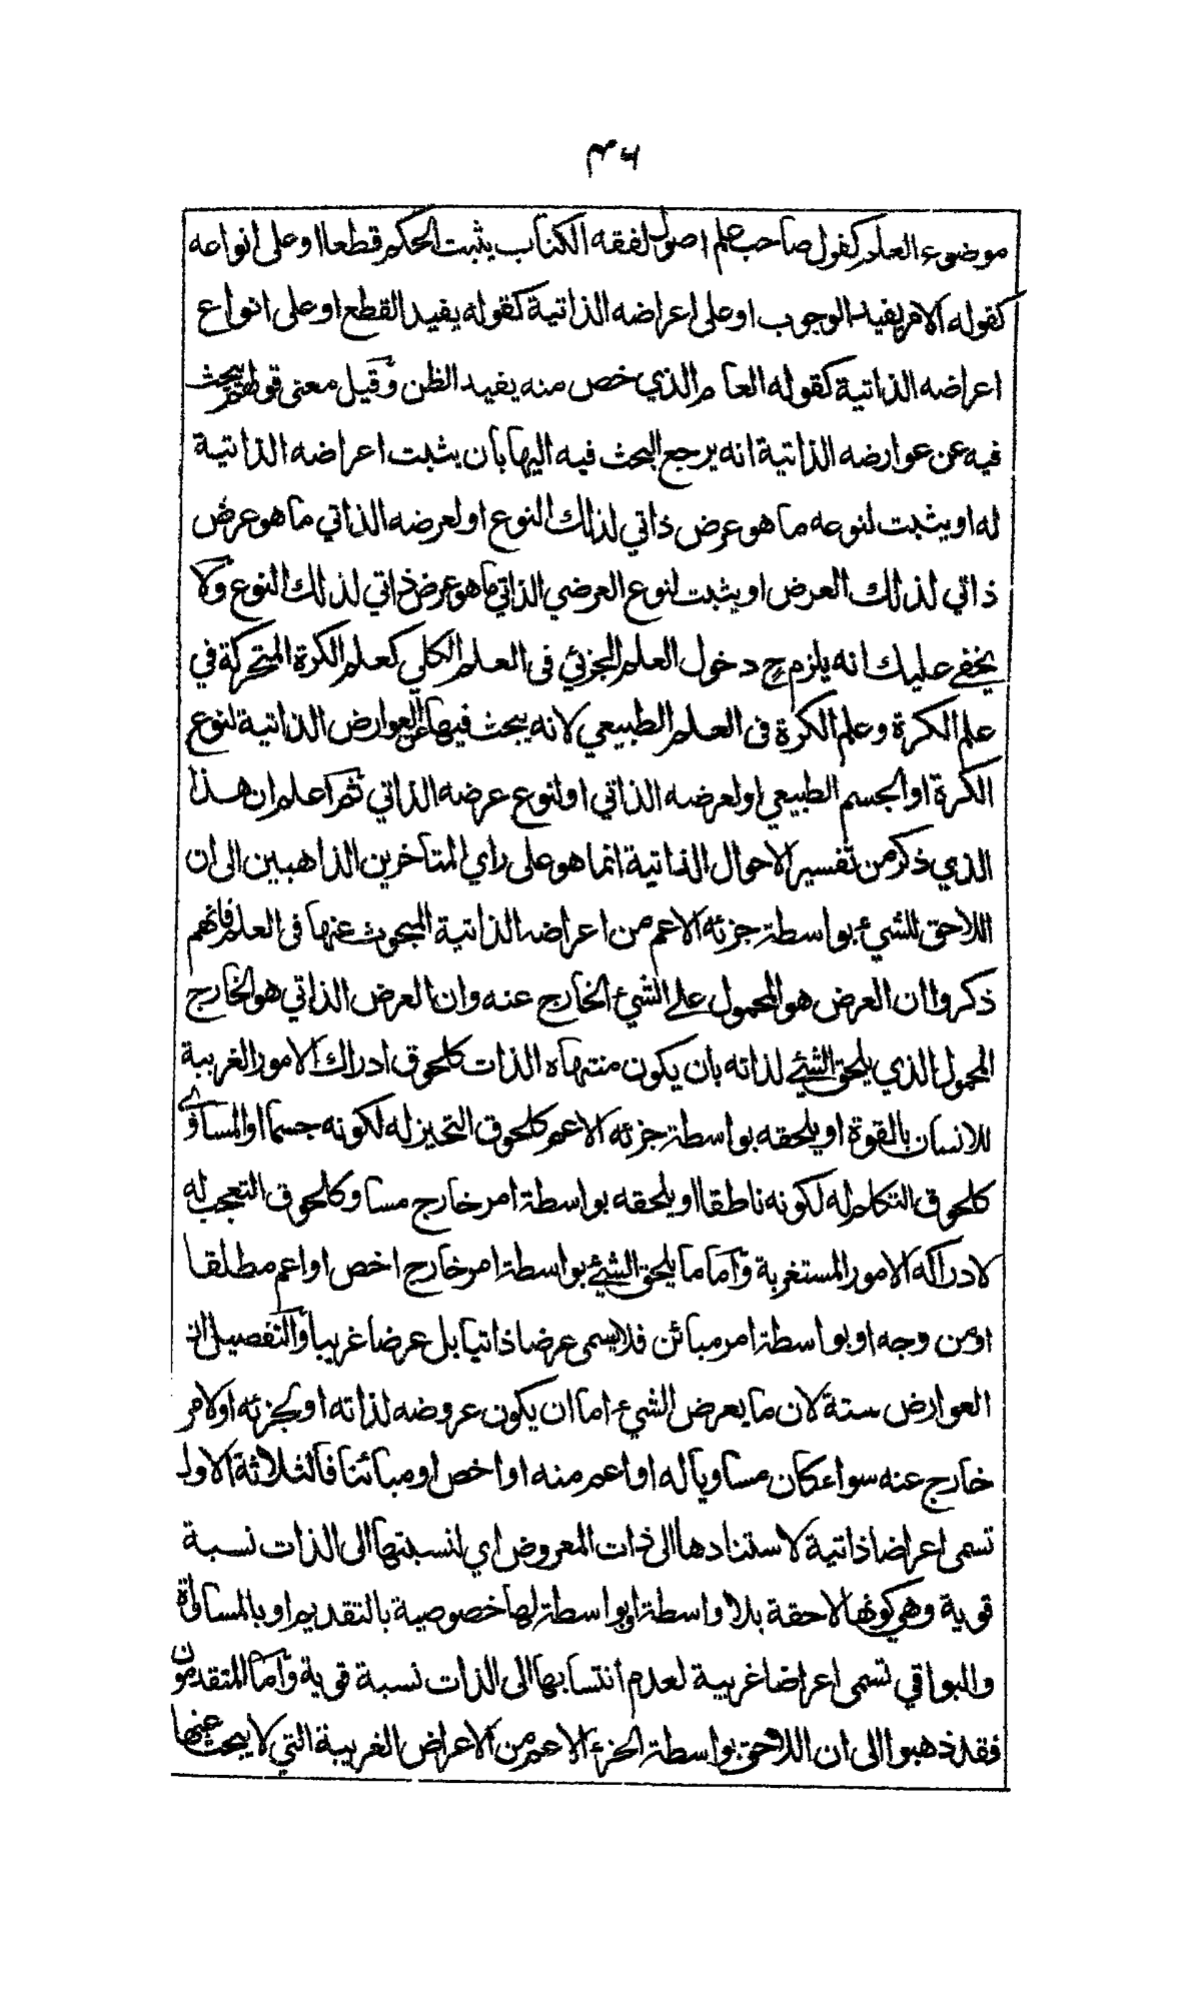 ٤٦
موضوع العلم كقول صاحب علم اصول الفقه الكتاب يثبت الحكم قطعا او على انواعه
كقوله الامر يفيد الوجوب او على اعراضه الذاتية كقوله يفيد القطع او على انواع
اعراضه الذاتية كقوله العام الذي خص منه يفيد الظن وقيل معنى قولهم يبحث
فيه عن عوارضه الذاتية انه يرجع البحث فيه اليها بان يثبت اعراضه الذاتية
له او يثبت لنوعه ما هو عرض ذاتي لذلك النوع او لعرضه الذاتي ما هو عرض
ذاتي لذلك العرض او يثبت لنوع العرضي الذاتي ما هو عرض ذاتي لذلك النوع ولا
يخفى عليك انه يلزم ح دخول العلم الجزئي فى العلم الكلي كعلم الكرة المتحركة في
علم الكرة وعلم الكرة فى العلم الطبيعي لانه يبحث فيها عن العوارض الذاتية لنوع
الكرة او الجسم الطبيعي او لعرضه الذاتي او لنوع عرضه الذاتي ثم اعلم ان هذا
الذي ذكر من تفسير الاحوال الذاتية انما هو على راي المتاخرين الذاهبين الى ان
اللاحق للشيء بواسطة جزئه الاعم من اعراضه الذاتية المبحوث عنها فى العلم فانهم
ذكروا ان العرض هو المحمول على الشيء الخارج عنه وان العرض الذاتي هو الخارج
المحمول الذي يلحق الشيء لذاته بان يكون منتهاه الذات كلحوق ادراك الامور الغريبة
للانسان بالقوة او يلحقه بواسطة جزئه الاعم كلحوق التحيز له لكونه جسما او المساوي
كلحوق التكلم له لكونه ناطقا او يلحقه بواسطة امر خارج مساو كلحوق التعجب له
لادراكه الامور المستغربة واما ما يلحق الشيء بواسطة امر خارج اخص او اعم مطلقا
او من وجه او بواسطة امر مبائن فلا يسمى عرضا ذاتيا بل عرضا غريبا والتفصيل ان
العوارض ستة لان ما يعرض الشيء اما ان يكون عروضه لذاته او لجزئه او لامر
خارج عنه سواء كان مساويا له او اعم منه او اخص او مبائنا فالثلاثة الاول
تسمى اعراضا ذاتية لاستنادها الى ذات المعروض اي لنسبتها الى الذات نسبة
قوية وهي كونها لاحقة بلا واسطة او بواسطة لها خصوصية بالتقديم او بالمساواة
والبواقي تسمى اعراضا غريبة لعدم انتسابها الى الذات نسبة قوية واما المتقدمون
فقد ذهبوا الى ان اللاحق بواسطة الجزء الاعم من الاعراض الغريبة التي لا يبحث عنها